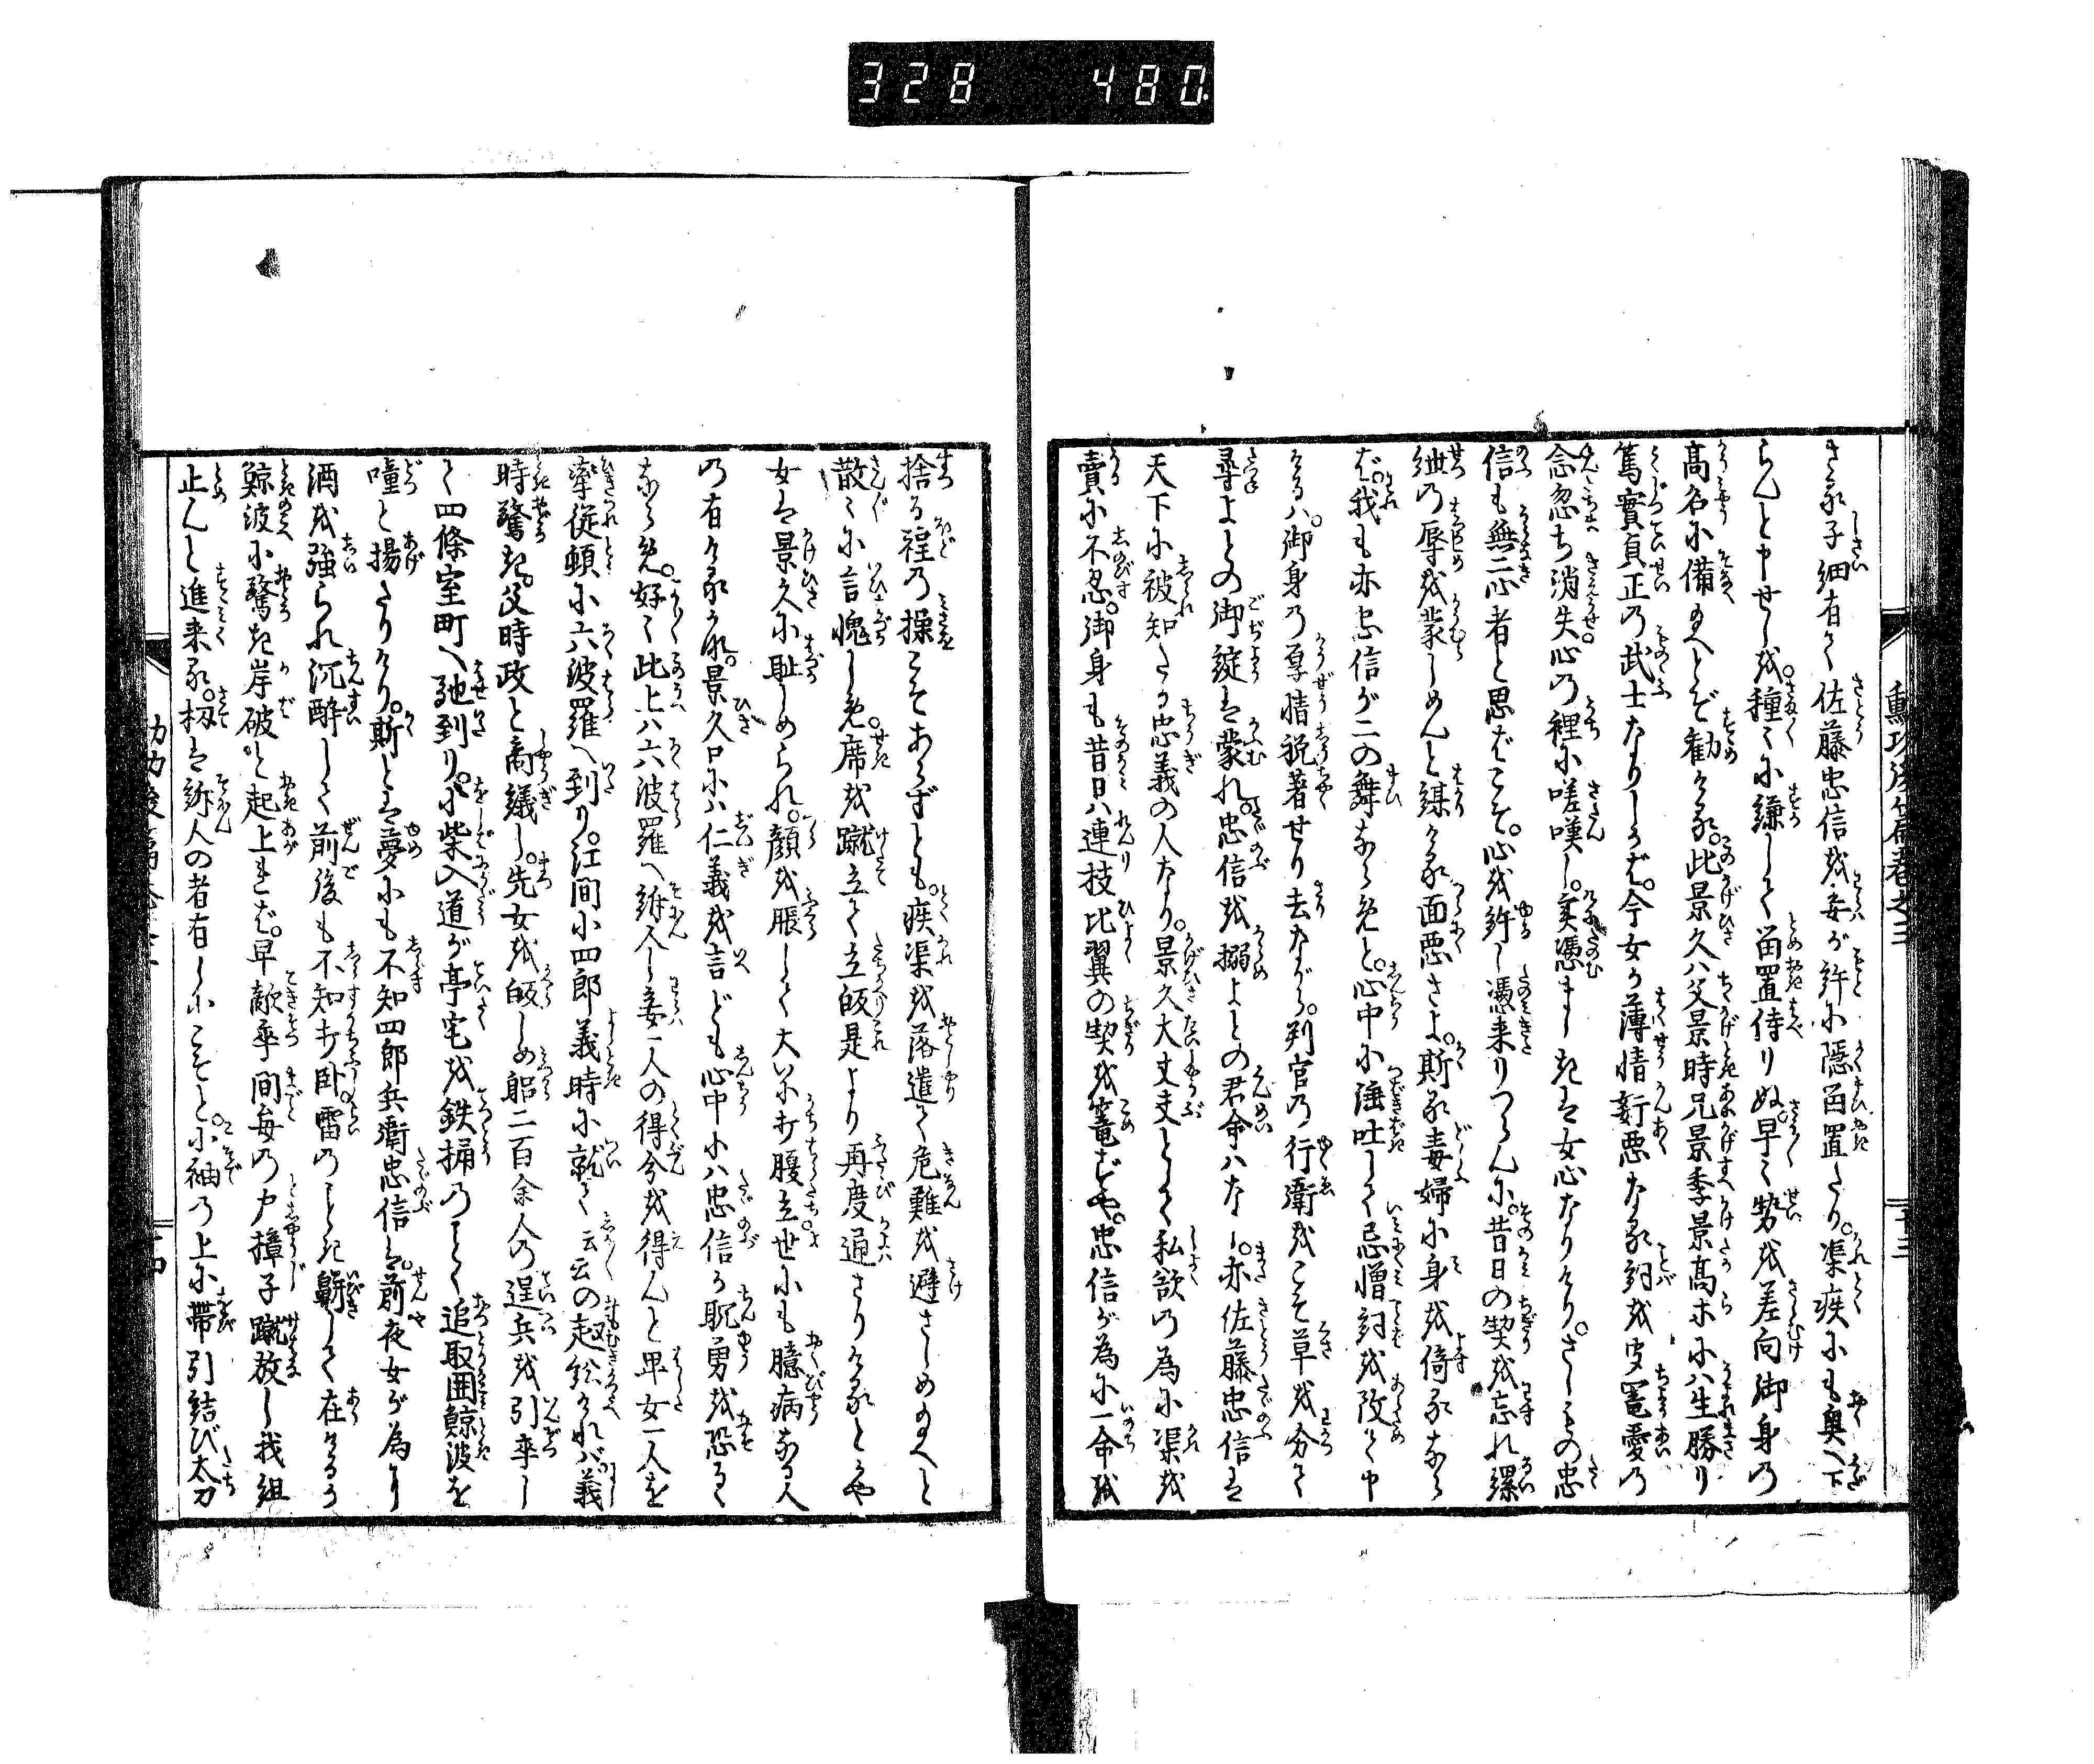 328 480
勲功後篇巻之三
さる子細有て佐藤忠信を妾が許に隠留置たり。渠疾にも奥へ下
らんと申せしを。種々に縑して留置侍りぬ。早々勢を差向御身の
高名に備玉へとぞ勧ける。此景久ハ父景時兄景季景高ホにハ生勝り
篤實貞正の武士なりしかば。今女が薄情奸悪なる詞を聞寵愛の
念忽ち消失心の裡に嗟嘆し。実憑ましきは女心なりけり。さしもの忠
信も無二心者と思ばこそ。心を許し憑来りつらんに。昔日の契を忘れ縲
紲の辱を蒙しめんと謀ける面悪さよ。斯る毒婦に身を倚るなら
ば。我も亦忠信が二の舞ならめと。心中に唾吐して忌憎詞を改て申
けるハ。御身の厚情祝著せり去ながら。判官の行衛をこそ草を分て
尋よとの御綻は蒙れ。忠信を搦よとの君命ハなし。亦佐藤忠信は
天下に被知たる忠義の人なり。景久大丈夫として私欲の為に渠を
賣に不忍。御身も昔日ハ連技比翼の契を篭ずや。忠信が為に一命を
捨る程の操こそあらずとも。疾渠を落遣て危難を避さしめ玉へと
散々に言愧しめ。席を蹴立て立皈是より再度通さりけるとかや
女は景久に耻しめられ。顔を脹して大に打腹立世にも臆病なる人
の有けるかな。景久口にハ仁義を言ども心中にハ忠信が驍勇を恐るゝ
ならめ。好々此上ハ六波羅へ訴人し妾一人の得分を得んと卑女一人を
牽従頓に六波羅へ到り。江間小四郎義時に就て云云の趣訟けれバ義
時驚き。父時政と商議し。先女を皈しめ躬二百余人の逞兵を引率し
て四條室町へ馳到り。小柴入道が亭宅を鉄桶のごとく追取囲鯨波を
噇と揚たりけり。斯とは夢にも不知四郎兵衛忠信は。前夜女が為に
酒を強られ沉酔して前後も不知打臥雷のごとき鼾して在けるが
鯨波に驚き岸破と起上れば。早敵率間毎の戸樟子蹴放し我組
止んと進来る。扨は訴人の者有しにこそと。小袖の上に帯引結び太刀